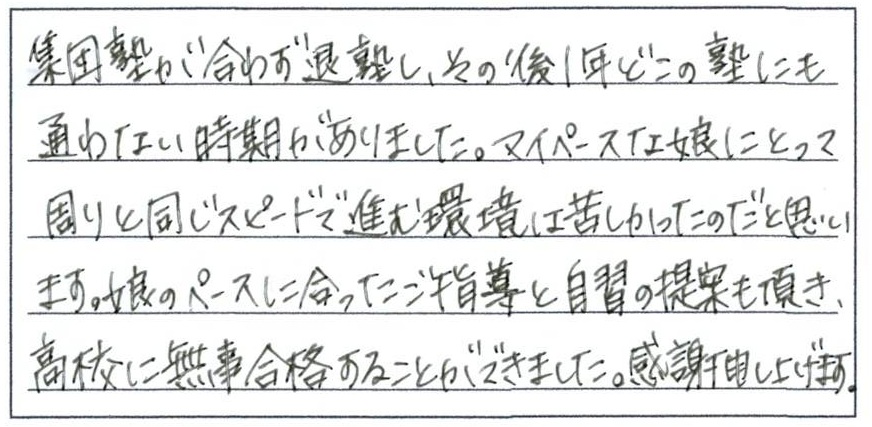 集団塾が合わず退塾し、その後1年どこの塾にも
通わない時期がありました。マイペースな娘にとって
周りと同じスピードで進む環境は苦しかったのだと思い
ます。娘のペースに合ったご指導と自習の提案も頂き、
高校に無事合格することができました。感謝申し上げます。